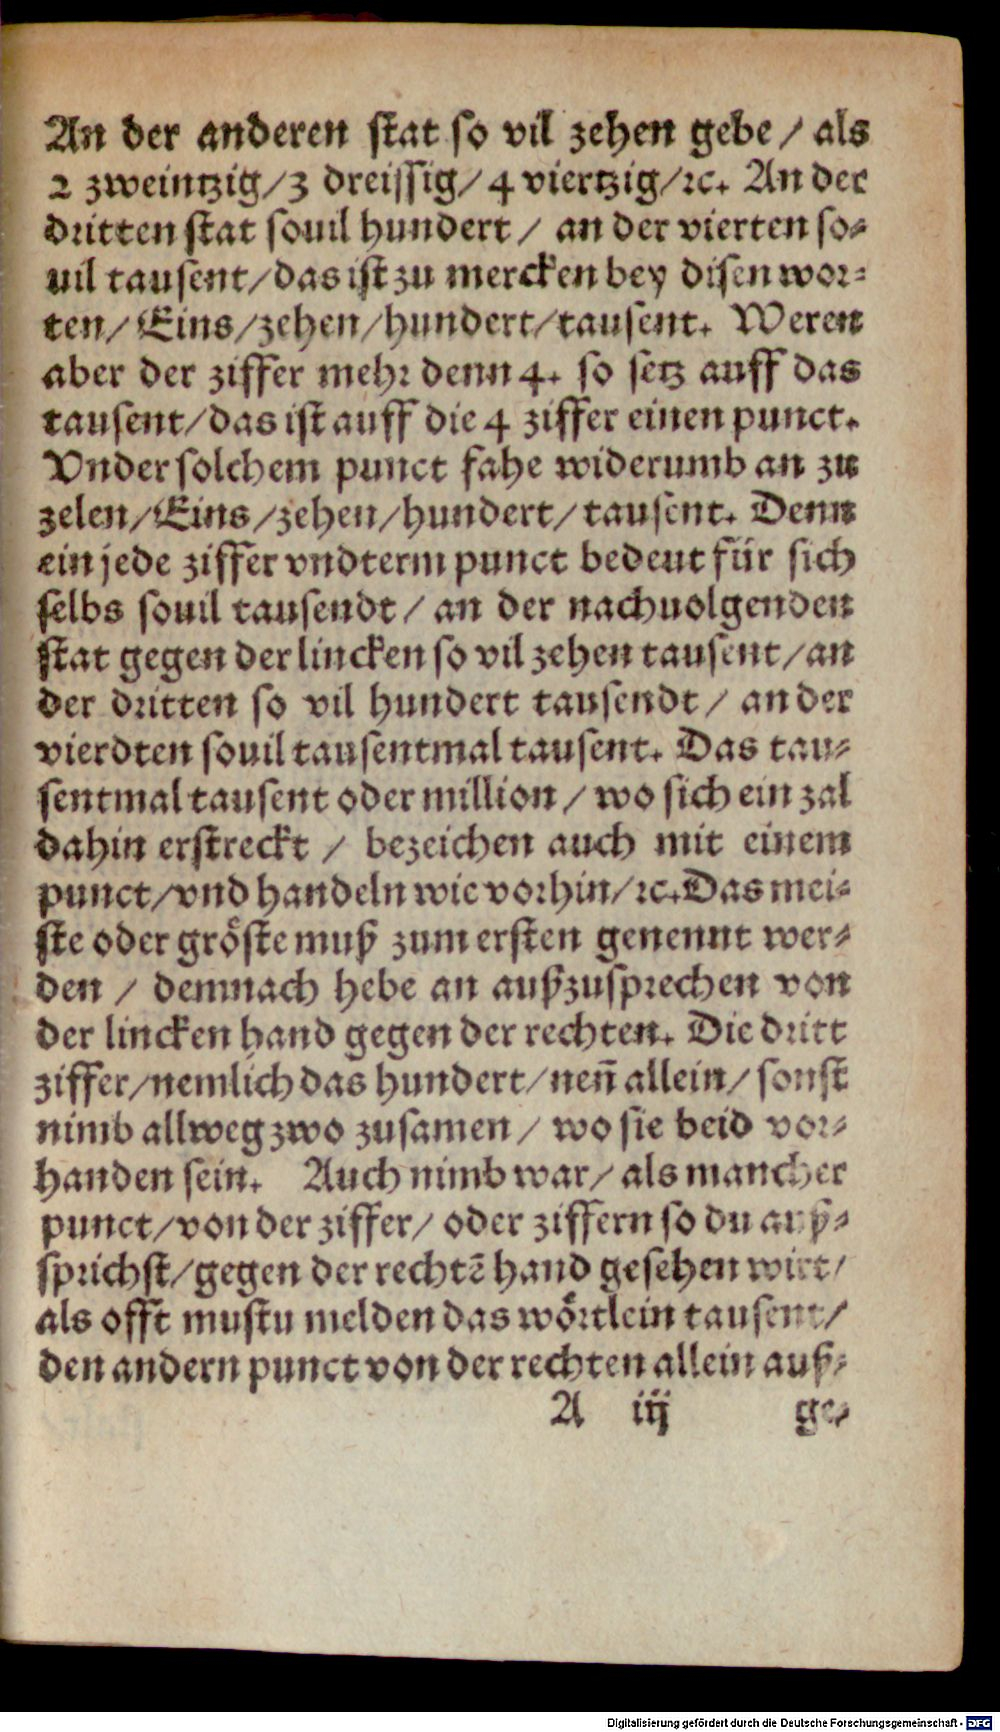 An der anderen stat so vil zehen gebe / als
2 zweintzig/3 dreissig/4 viertzig/ꝛc. An der
dritten stat souil hundert / an der vierten so⸗
uil tausent/das ist zu mercken bey disen wor⸗
ten/ Eins/zehen/hundert/tausent. Weren
aber der ziffer mehr denn 4. so setz auff das
tausent/das ist auff die 4 ziffer einen punct.
Vnder solchem punct fahe widerumb an zu
zelen/Eins/zehen/hundert/tausent. Denn
ein jede ziffer vndterm punct bedeut für sich
selbs souil tausendt / an der nachuolgenden
stat gegen der lincken so vil zehen tausent/an
der dritten so vil hundert tausendt / an der
vierdten souil tausentmal tausent. Das tau⸗
sentmal tausent oder million / wo sich ein zal
dahin erstreckt / bezeichen auch mit einem
punct/vnd handeln wie vorhin/ꝛc. Das mei⸗
ste oder gröste muß zum ersten genennt wer⸗
den / demnach hebe an außzusprechen von
der lincken hand gegen der rechten. Die dritt
ziffer/nemlich das hundert/neñ allein/ sonst
nimb allweg zwo zusamen / wo sie beid vor⸗
handen sein. Auch nimb war/ als mancher
punct/von der ziffer/ oder ziffern so du auß⸗
sprichst/gegen der rechtē hand gesehen wirt/
als offt mustu melden das wörtlein tausent/
den andern punct von der rechten allein auß⸗
A iij ge⸗
Digitalisierung gefördert durch die Deutsche Forschungsgemeinschaft - DFG